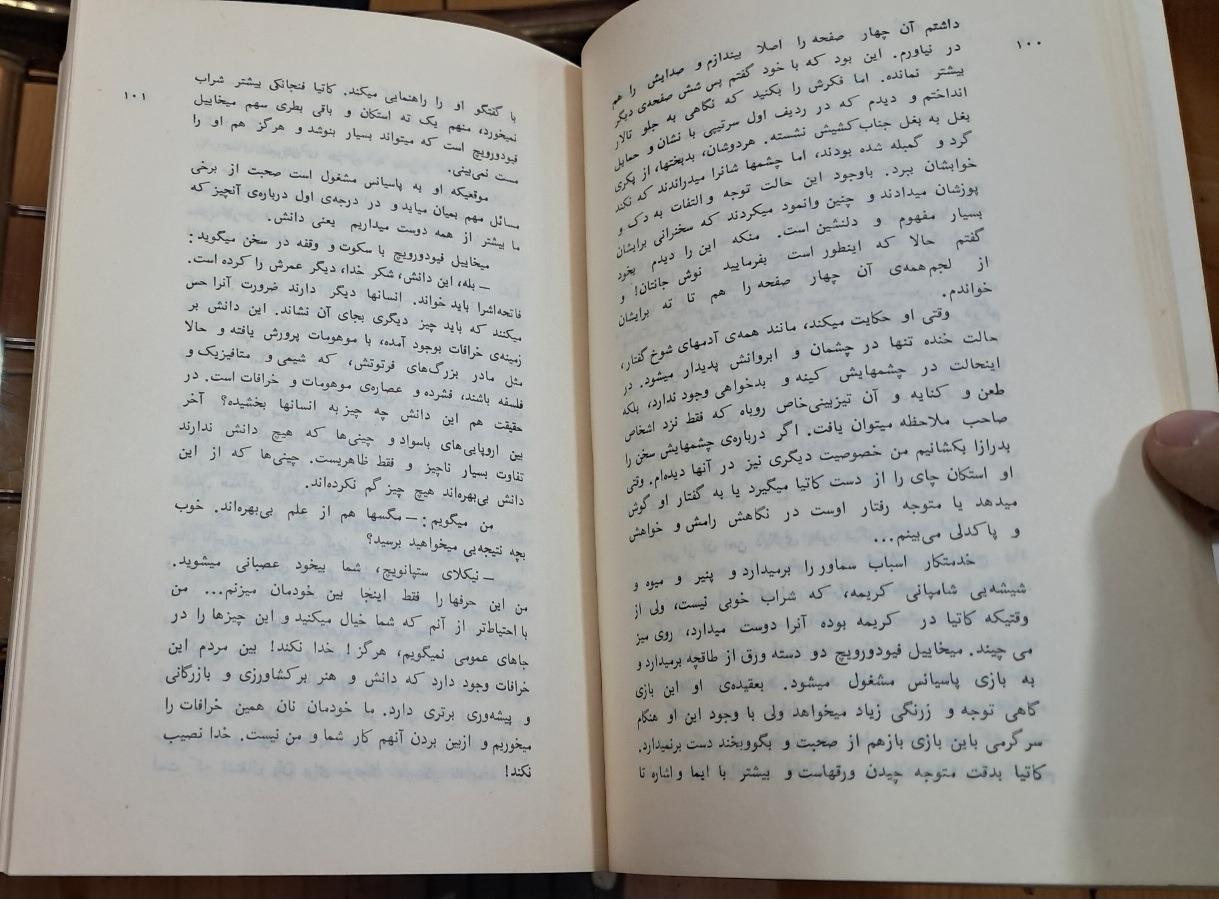 ۱۰۰
داشتم آن چهار صفحه را اصلا بیندازم و صدایش را هم
در نیاورم. این بود که با خود گفتم بس شش صفحه‌ی دیگر
بیشتر نمانده. اما فکرش را بکنید که نگاهی به جلو تالار
انداختم و دیدم که در ردیف اول سرتیپی با نشان و حمایل
بغل به بغل جناب کشیش نشسته. هردوشان، بدبختها، از پکری
گرد و گمبله شده بودند، اما چشمها شانرا میدراندند که نکند
خوابشان ببرد. باوجود این حالت توجه و التفات به دک و
پوزشان میدادند و چنین وانمود میکردند که سخنرانی برایشان
بسیار مفهوم و دلنشین است. منکه این را دیدم بخود
گفتم حالا که اینطور است بفرمایید نوش جانتان! و
از لجم همه‌ی آن چهار صفحه را هم تا ته برایشان
خواندم.
وقتی او حکایت میکند، مانند همه‌ی آدمهای شوخ گفتار،
حالت خنده تنها در چشمان و ابروانش پدیدار میشود. در
اینحالت در چشمهایش کینه و بدخواهی وجود ندارد، بلکه
طعن و کنایه و آن تیزبینی خاص روباه که فقط نزد اشخاص
صاحب ملاحظه میتوان یافت. اگر درباره‌ی چشمهایش سخن را
بدرازا بکشانیم من خصوصیت دیگری نیز در آنها دیده‌ام. وقتی
او استکان چای را از دست کاتیا میگیرد یا به گفتار او گوش
میدهد یا متوجه رفتار اوست در نگاهش رامش و خواهش
و پاکدلی می‌بینم...
خدمتکار اسباب سماور را برمیدارد و پنیر و میوه و
شیشه‌یی شامپانی کریمه، که شراب خوبی نیست، ولی از
وقتیکه کاتیا در کریمه بوده آنرا دوست میدارد، روی میز
می چیند. میخاییل فیودورویچ دو دسته ورق از طاقچه برمیدارد و
به بازی پاسیانس مشغول میشود. بعقیده‌ی او این بازی
گاهی توجه و زرنگی زیاد میخواهد ولی با وجود این او هنگام
سرگرمی باین بازی بازهم از صحبت و بگووبخند دست برنمیدارد.
کاتیا بدقت متوجه چیدن ورقهاست و بیشتر با ایما و اشاره تا
۱۰۱
با گفتگو او را راهنمایی میکند. کاتیا فنجانکی بیشتر شراب
نمیخورد، منهم یک ته استکان و باقی بطری سهم میخاییل
فیودورویچ است که میتواند بسیار بنوشد و هرگز هم او را
مست نمی‌بینی.
موقعیکه او به پاسیانس مشغول است صحبت از برخی
مسائل مهم بمیان میاید و در درجه‌ی اول درباره‌ی آنچیز که
ما بیشتر از همه دوست میداریم یعنی دانش.
میخاییل فیودورویچ با سکوت و وقفه در سخن میگوید:
— بله، این دانش، شکر خدا، دیگر عمرش را کرده است.
فاتحه‌اشرا باید خواند. انسانها دیگر دارند ضرورت آنرا حس
میکنند که باید چیز دیگری بجای آن نشاند. این دانش بر
زمینه‌ی خرافات بوجود آمده، با موهومات پرورش یافته و حالا
مثل مادر بزرگ‌های فرتوتش، که شیمی و متافیزیک و
فلسفه باشند، فشرده و عصاره‌ی موهومات و خرافات است. در
حقیقت هم این دانش چه چیز به انسانها بخشیده؟ آخر
بین اروپایی‌های باسواد و چینی‌ها که هیچ دانش ندارند
تفاوت بسیار ناچیز و فقط ظاهریست. چینی‌ها که از این
دانش بی‌بهره‌اند هیچ چیز گم نکرده‌اند.
من میگویم: — مگسها هم از علم بی‌بهره‌اند. خوب
بچه نتیجه‌یی میخواهید برسید؟
— نیکلای ستپانویچ، شما بیخود عصبانی میشوید.
من این حرفها را فقط اینجا بین خودمان میزنم... من
با احتیاط‌تر از آنم که شما خیال میکنید و این چیزها را در
جاهای عمومی نمیگویم، هرگز! خدا نکند! بین مردم این
خرافات وجود دارد که دانش و هنر بر کشاورزی و بازرگانی
و پیشه‌وری برتری دارد. ما خودمان نان همین خرافات را
میخوریم و ازبین بردن آنهم کار شما و من نیست. خدا نصیب
نکند!